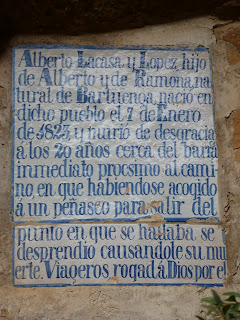 Alberto Lacasa y Lopez hijo
de Alberto y de Ramona, na
tural de Barluenga, nació en
dicho pueblo el 7 de Enero
de 1827 y murio de desgracia
á los 20 años cerca del
inmediato procsimo al cami
no, en que habiendose acogido
á un peñasco para salir del
punto en que se hallaba se
desprendio causandole su mu
erte. Viageros rogad á Dios por el